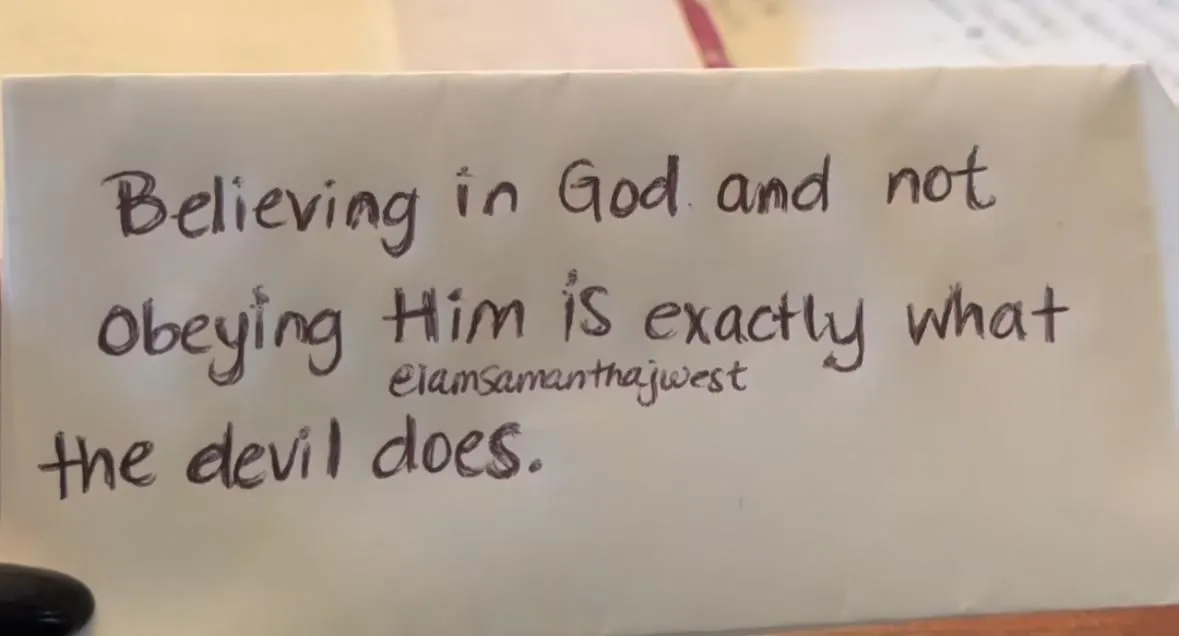 Believing in God and not
Obeying Him is exactly what
@iamsamanthajwest
the devil does.